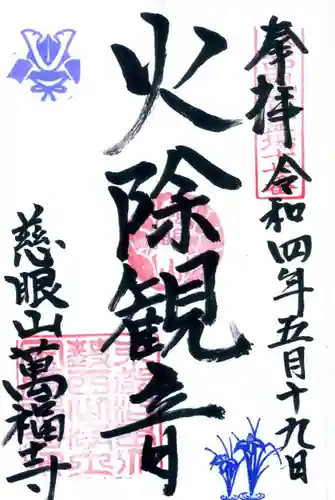 奉拝 令和四年五月十九日
火除観音
慈眼山萬福寺